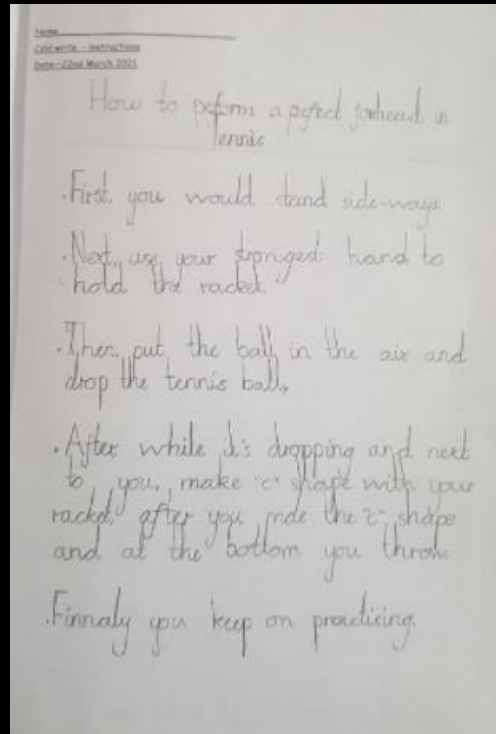 Name
Cold write - Instructions
Date - 22nd March 2021
How to peform a pefect forhead in
Tennis
. First, you would stand side-ways
. Next, use your strongest hand to
hold the racket.
. Then, put the ball in the air and
drop the tennis ball.
. After while it's dropping and next
to you, make "c" shape with your
racket after you made the "c" shape
and at the bottom you throw
. Finnaly you keep on practising.